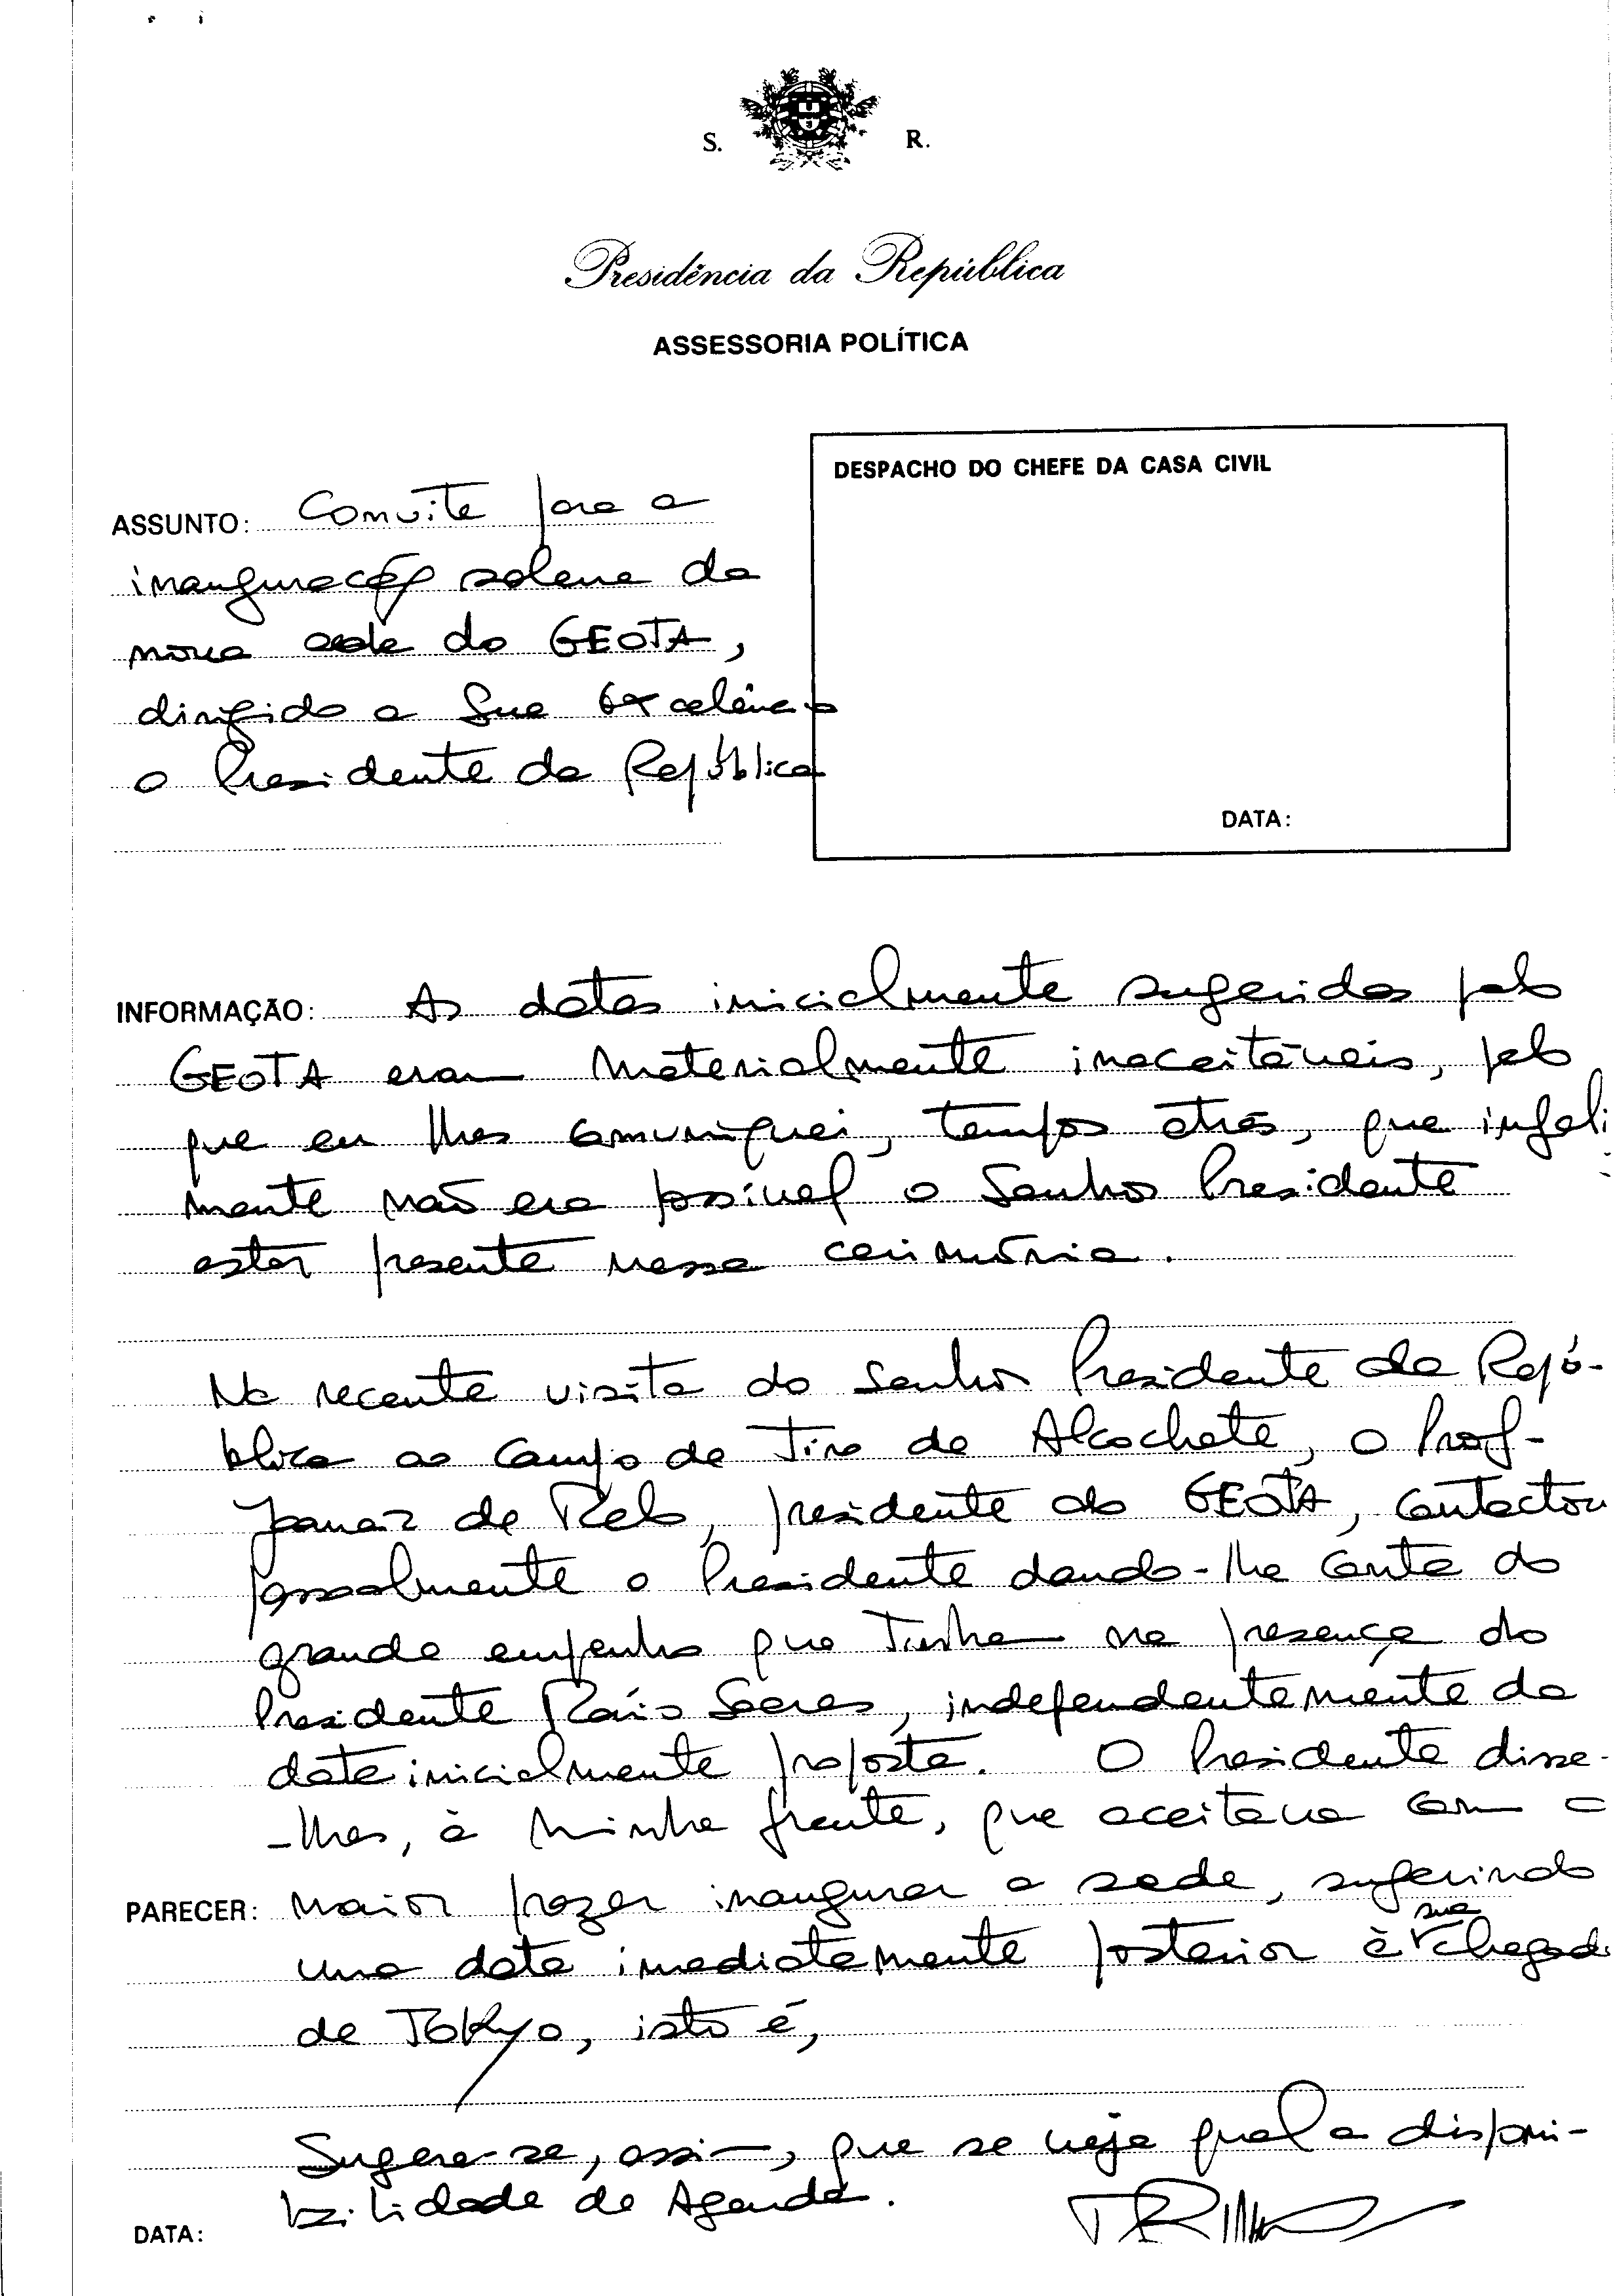 S. R.
Presidência da República
ASSESSORIA POLÍTICA
DESPACHO DO CHEFE DA CASA CIVIL
DATA:
ASSUNTO: Convite para a
inauguração solene da
nova sede do GEOTA,
dirigido a Sua Excelência
o Presidente da República
INFORMAÇÃO: As datas inicialmente sugeridas pelo
GEOTA eram materialmente inaceitáveis, pelo
que eu lhes comuniquei, tempos atrás, que infeli
mente não era possível o Senhor Presidente
estar presente nessa cerimónia.
Na recente visita do Senhor Presidente da Repú-
blica ao Campo de Tiro de Alcochete, o Prof.
Joanaz de Melo, presidente do GEOTA, contactou
pessoalmente o Presidente dando-lhe conta do
grande empenho que tinha na presença do
Presidente Mário Soares, independentemente da
data inicialmente proposta. O Presidente disse-
-lhes, à minha frente, que aceitava com o
PARECER: maior prazer inaugurar a sede, sugerindo
uma data imediatamente posterior à sua chegada
de Tokyo, isto é,
Sugere-se, assim, que se veja qual a disponi-
bilidade de Agenda.
DATA: